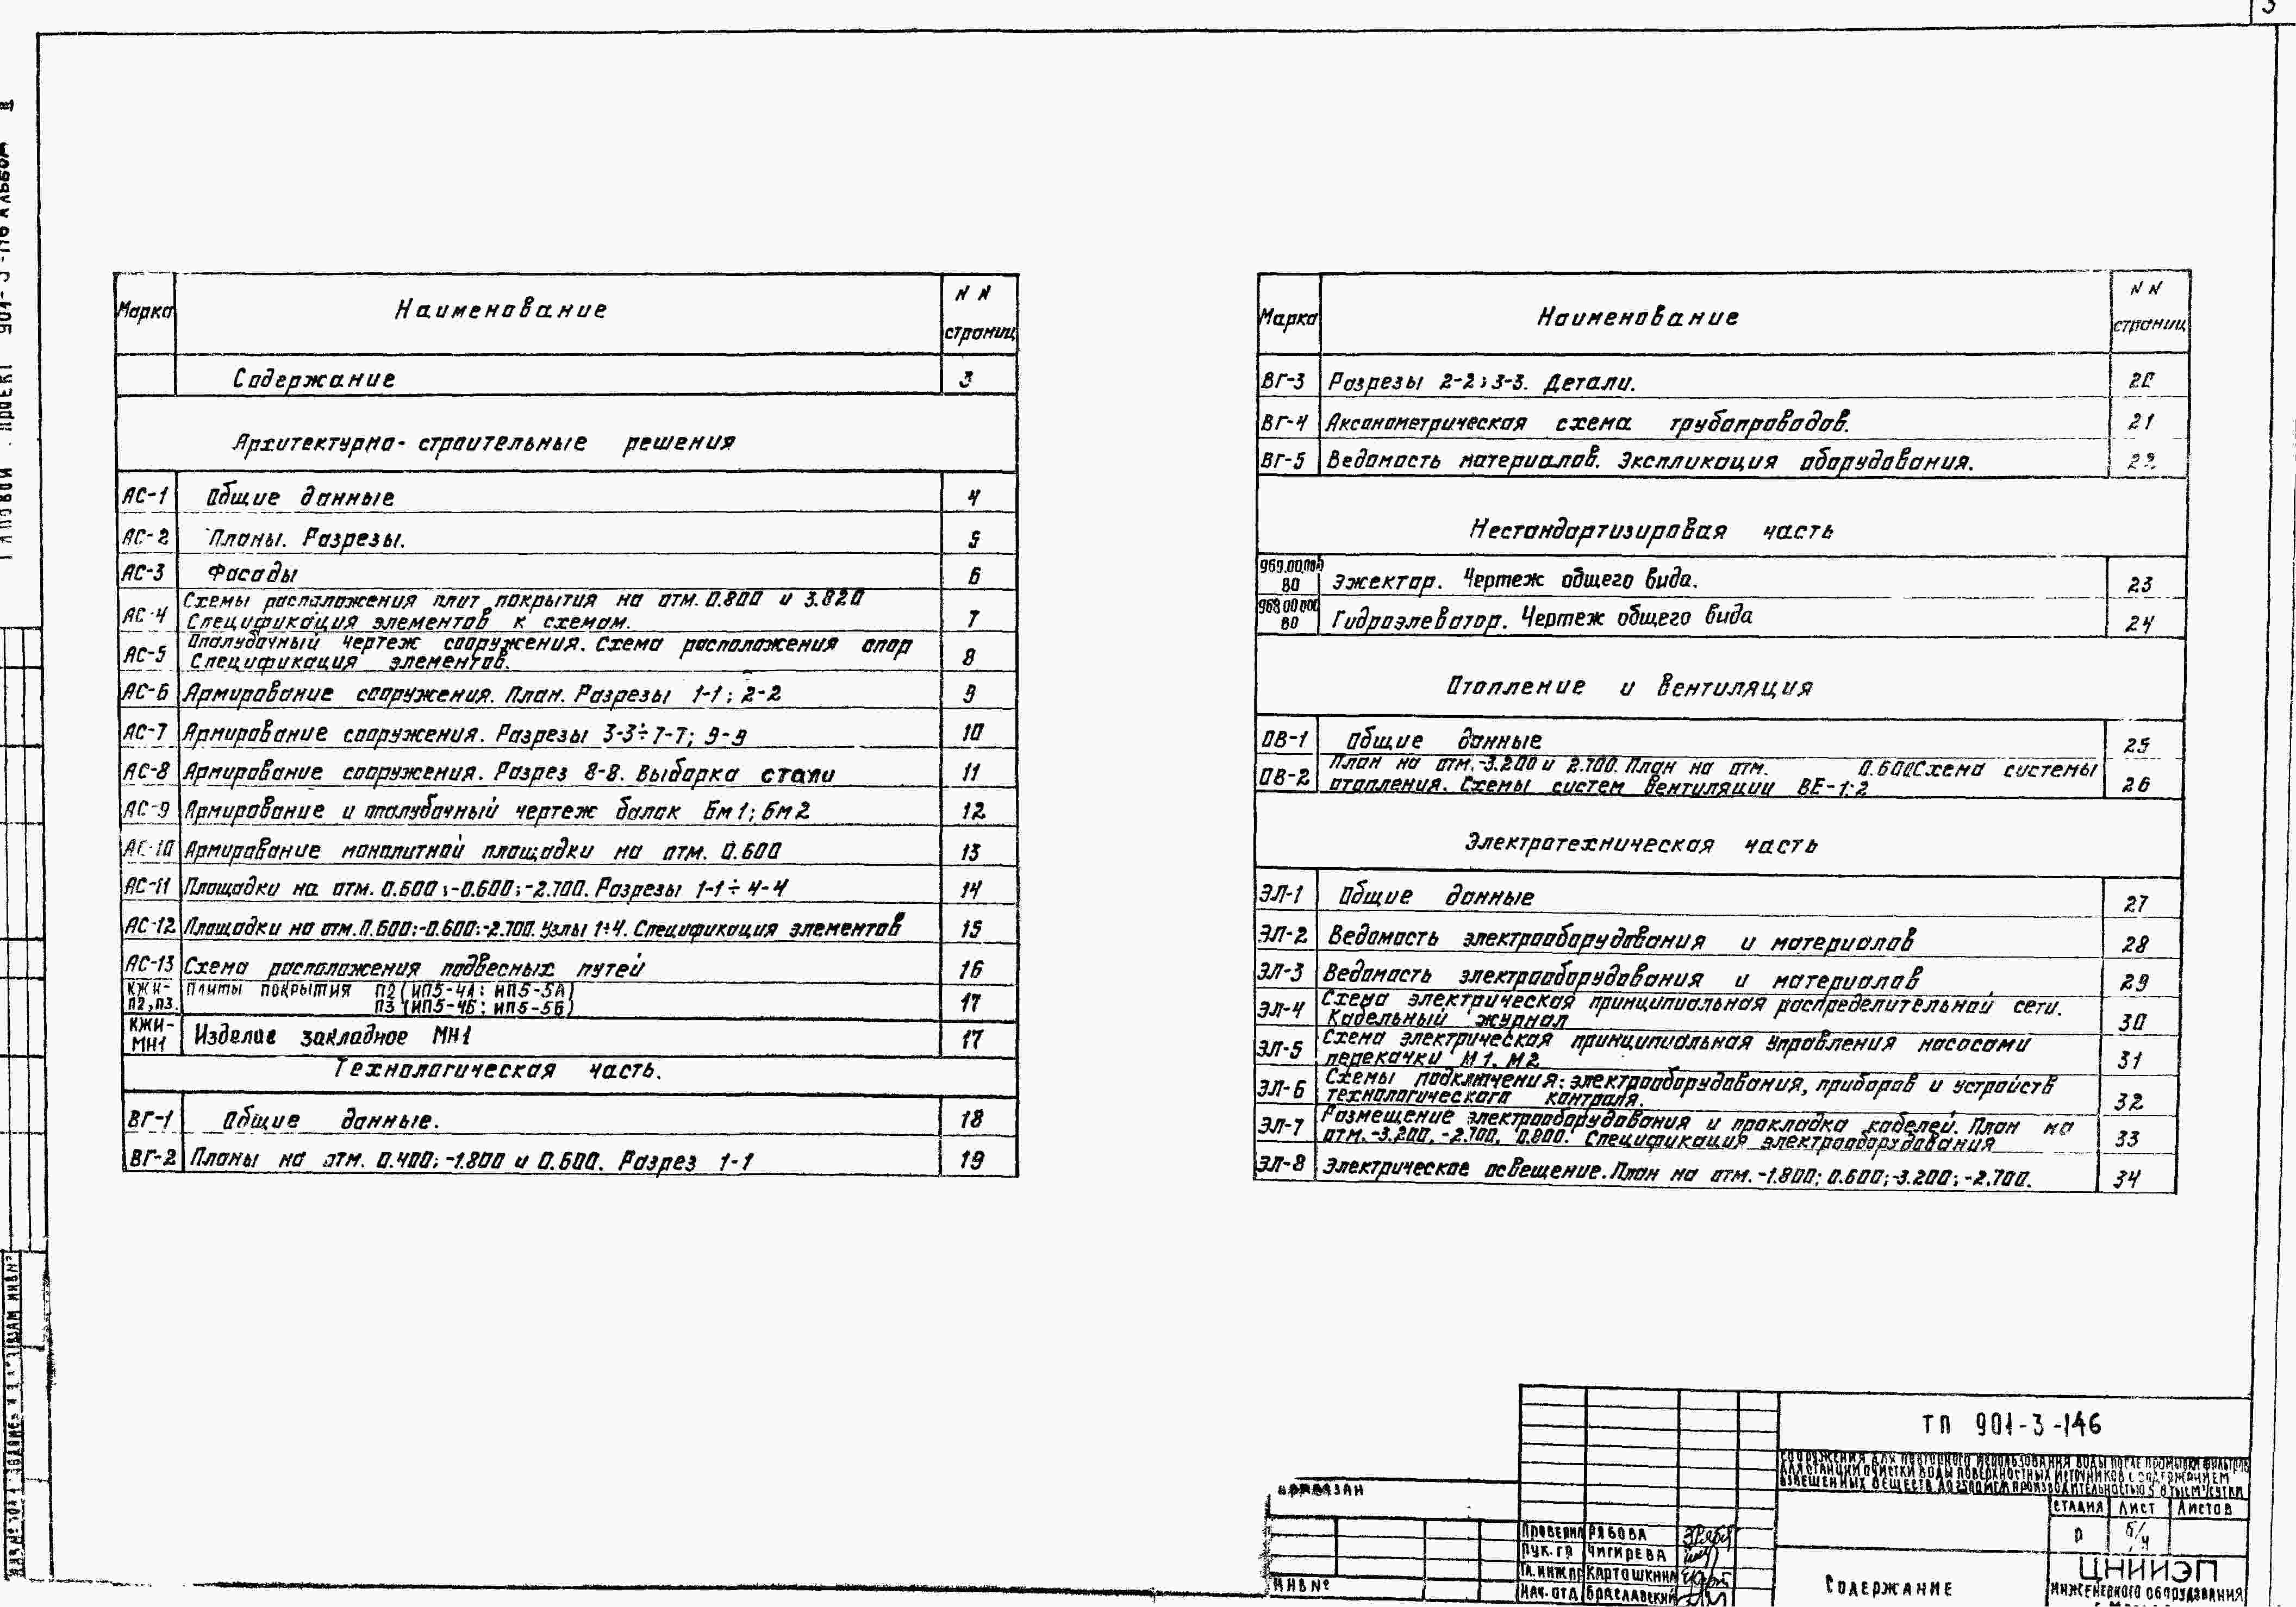 3
Марка Наименование NN страниц
Содержание 3
Архитектурно-строительные решения
АС-1 Общие данные 4
АС-2 Планы. Разрезы. 5
АС-3 Фасады 6
АС-4 Схемы расположения плит покрытия на отм. 0.800 и 3.820
Спецификация элементов к схемам. 7
АС-5 Опалубочный чертеж сооружения. Схема расположения опор
Спецификация элементов. 8
АС-6 Армирование сооружения. План. Разрезы 1-1; 2-2 9
АС-7 Армирование сооружения. Разрезы 3-3÷7-7; 9-9 10
АС-8 Армирование сооружения. Разрез 8-8. Выборка стали 11
АС-9 Армирование и опалубочный чертеж балок Бм1; Бм2 12
АС-10 Армирование монолитной площадки на отм. 0.600 13
АС-11 Площадки на отм. 0.600; -0.600; -2.700. Разрезы 1-1÷4-4 14
АС-12 Площадки на отм. 0.600; -0.600; -2.700. Узлы 1÷4. Спецификация элементов 15
АС-13 Схема расположения подвесных путей 16
КЖИ-П2,П3. Плиты покрытия П2 (ИП5-4А; ИП5-5А)
П3 (ИП5-4Б; ИП5-5Б) 17
КЖИ-МН1 Изделие закладное МН1 17
Технологическая часть.
ВГ-1 Общие данные. 18
ВГ-2 Планы на отм. 0.400; -1.800 и 0.600. Разрез 1-1 19
Марка Наименование NN страниц
ВГ-3 Разрезы 2-2; 3-3. Детали. 20
ВГ-4 Аксонометрическая схема трубопроводов. 21
ВГ-5 Ведомость материалов. Экспликация оборудования. 22
Нестандартизировая часть
969.00.000 ВО Эжектор. Чертеж общего вида. 23
968.00.000 ВО Гидроэлеватор. Чертеж общего вида 24
Отопление и вентиляция
ОВ-1 Общие данные 25
ОВ-2 План на отм. -3.200 и 2.700. План на отм. 0.600 Схема системы
отопления. Схемы систем вентиляции ВЕ-1;2 26
Электротехническая часть
ЭЛ-1 Общие данные 27
ЭЛ-2 Ведомость электрооборудования и материалов 28
ЭЛ-3 Ведомость электрооборудования и материалов 29
ЭЛ-4 Схема электрическая принципиальная распределительной сети.
Кабельный журнал 30
ЭЛ-5 Схема электрическая принципиальная управления насосами
перекачки М1, М2 31
ЭЛ-6 Схемы подключения: электрооборудования, приборов и устройств
технологического контроля. 32
ЭЛ-7 Размещение электрооборудования и прокладка кабелей. План на
отм. -3.200, -2.700, 0.800. Спецификация электрооборудования 33
ЭЛ-8 Электрическое освещение. План на отм. -1.800; 0.600; -3.200; -2.700. 34
ТП 901-3-146
Сооружения для повторного использования воды после промывки фильтров
для станции очистки воды поверхностных источников с содержанием
взвешенных веществ до 2500 мг/л производительностью
Стадия Лист Листов
Р
Привязан
Инв №
Проверил Рябова
Рук. гр Чигирева
Гл. инж. пр Карташкина
Нач. отд Браславский
Содержание
ЦНИИЭП
инженерного оборудования